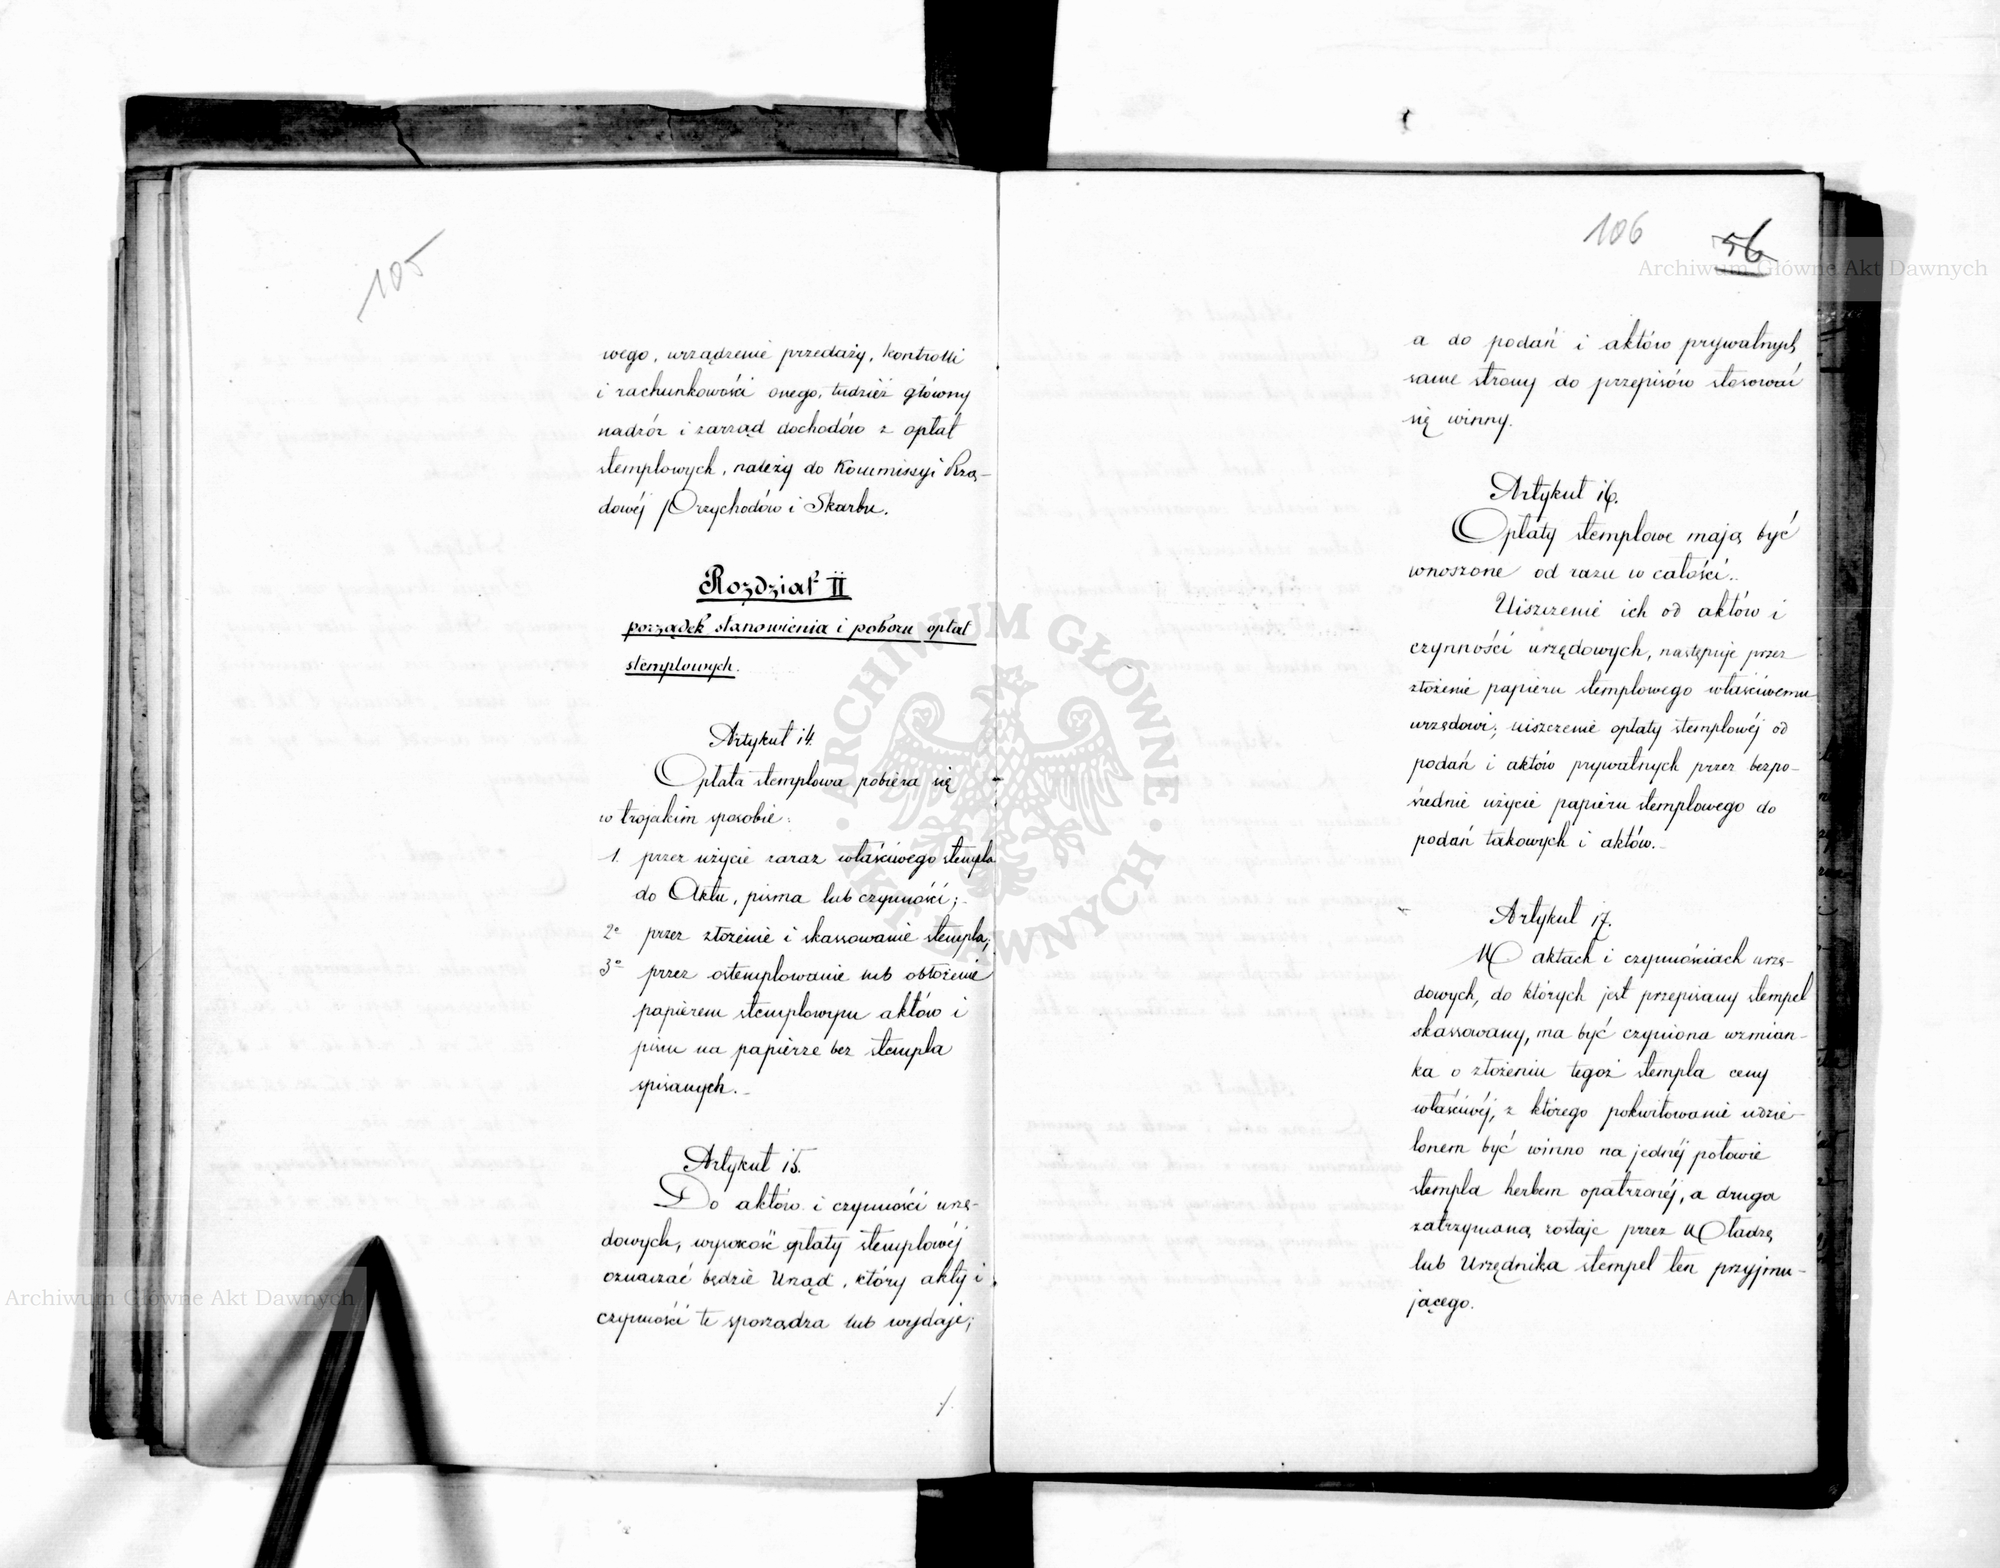 105
wego, urządzenie przedaży, kontrolli
i rachunkowości onego, tudzież główny
nadzór i zarząd dochodów z opłat
stemplowych, należy do Kommissyi Rzą-
dowéj Przychodów i Skarbu.
Rozdział II
porządek stanowienia i poboru opłat
stemplowych.
Artykuł 14.
Opłata stemplowa pobiera się
w trojakim sposobie:
1. przez użycie zaraz właściwego stempla
do Aktu, pisma lub czynności;
2º przez złożenie i skassowanie stempla;
3º przez ostemplowanie lub obłożenie
papierem stemplowym aktów i
pism na papierze bez stempla
spisanych.-
Artykuł 15.
Do aktów i czynności urzę-
dowych, wysokość opłaty stemplowéj
oznaczać będzie Urząd, który akty i
czynności te sporządza lub wydaje;
106
56
a do podań i aktów prywatnych
same strony do przepisów stosować
się winny.
Artykuł 16.
Opłaty stemplowe mają być
wnoszone od razu w całości..
Uiszczenie ich od aktów i
czynności urzędowych, następuje przez
złożenie papieru stemplowego właściwemu
urzędowi; uiszczenie opłaty stemplowéj od
podań i aktów prywatnych przez bezpo-
średnie użycie papieru stemplowego do
podań takowych i aktów.-
Artykuł 17.
W aktach i czynnościach urzę-
dowych, do których jest przepisany stempel
skassowany, ma być czyniona wzmian-
ka o złożeniu tegoż stempla ceny
właściwéj, z którego pokwitowanie udzie-
lonem być winno na jednéj połowie
stempla herbem opatrzonéj, a druga
zatrzymaną zostaje przez Władzę
lub Urzędnika stempel ten przyjmu-
jącego.
Archiwum Główne Akt Dawnych
Archiwum Główne Akt Dawnych
ARCHIWUM GŁÓWNE · AKT DAWNYCH ·